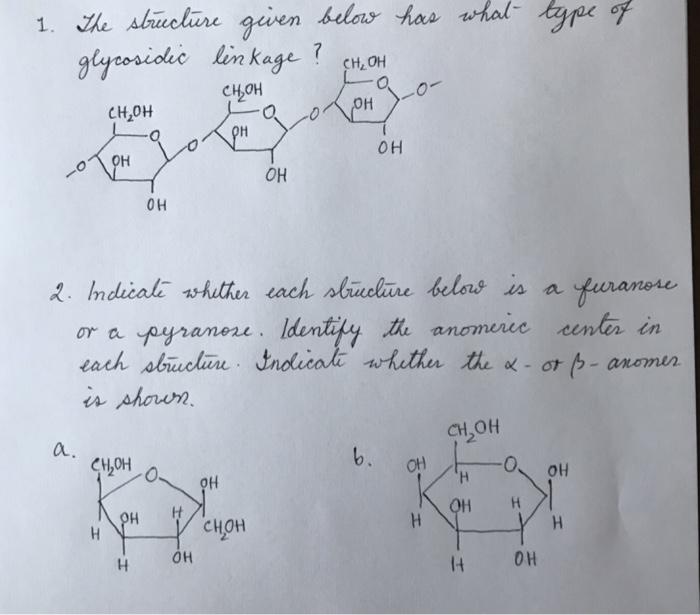 1. The structure given below has what type of
glycosidic linkage ?
CH₂OH
CH₂OH
CH₂OH
O
O
O
-O
OH
O
OH
O
OH
-O-
OH
OH
OH
2. Indicate whether each structure below is a furanose
or a pyranose. Identify the anomeric center in
each structure. Indicate whether the α- or β- anomer
is shown.
a.
CH₂OH
O
OH
OH
H
H
CH₂OH
H
OH
b.
CH₂OH
OH
H
O
OH
OH
H
H
H
H
OH